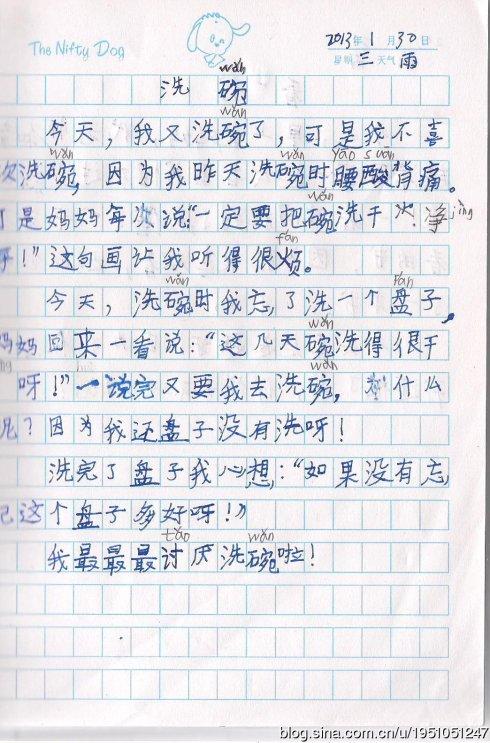 The Nifty Dog
2013年1月30日
星期三天气雨
wǎn
洗碗
wǎn
今天，我又洗碗了，可是我不喜
wǎn wǎn yāo suān
欢洗碗，因为我昨天洗碗时腰酸背痛。
wǎn jìng
可是妈妈每次说“一定要把碗洗干净
fán
呀！”这句画让我听得很烦。
wǎn pán
今天，洗碗时我忘了洗一个盘子，
wǎn
妈妈回来一看说：“这几天碗洗得很干
wǎn
呀！”一说完又要我去洗碗，为什么
呢？因为我还盘子没有洗呀！
洗完了盘子我心想：“如果没有忘
记这个盘子多好呀！”
tǎo wǎn
我最最最讨厌洗碗啦！
blog.sina.com.cn/u/1951051247